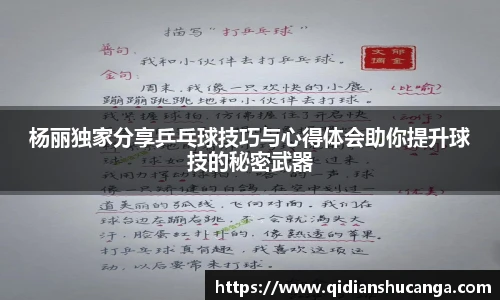 描写“打乒乓球”
普句:
我和小伙伴去打乒乓球。
金句:
文郁
摘金
周末,我像一只欢快的小鹿,
(比喻)
蹦蹦跳跳地和小伙伴去打球。
我紧握球拍,仿佛握住了开启快
杨丽独家分享乒乓球技巧与心得体会助你提升球
技的秘密武器
道美丽的弧线,飞向对面。我们在
球台边左蹦右跳,不一会就满头大
汗,脸蛋红扑扑的,像熟透的苹果。
打乒乓球真有趣,我喜欢这项运
动,以后要常来打球。
https://www.qidianshucanga.com